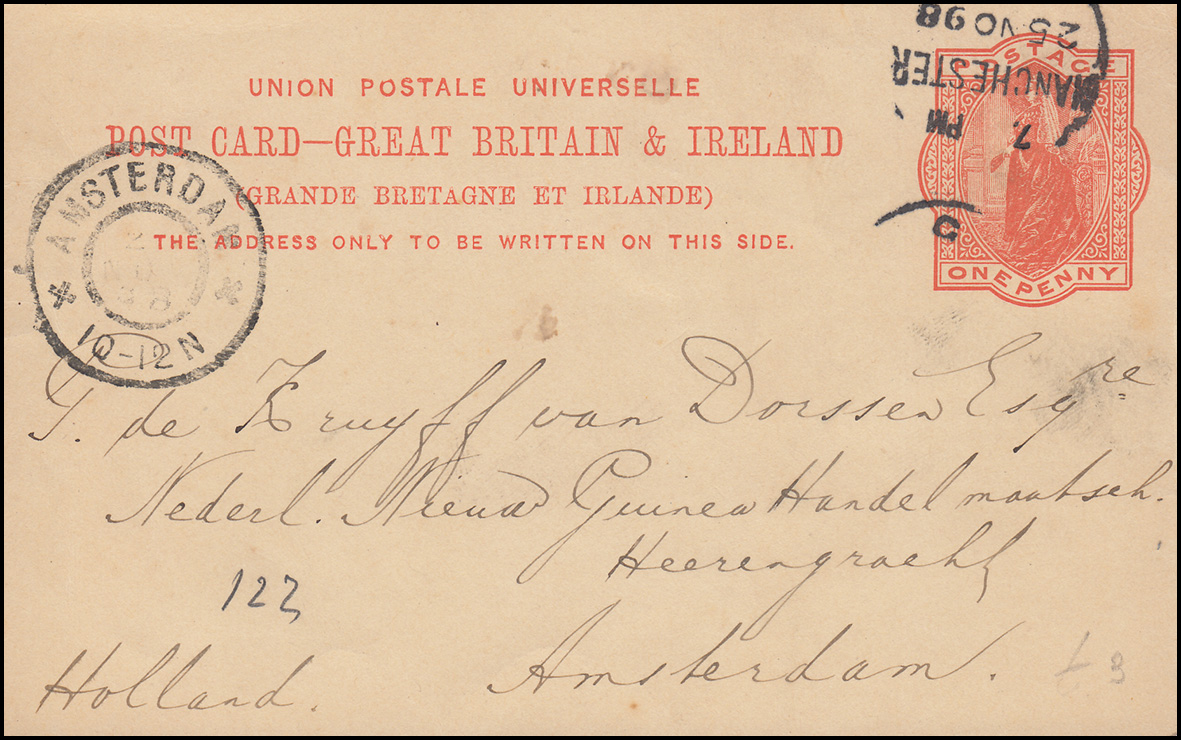 UNION POSTALE UNIVERSELLE
POST CARD—GREAT BRITAIN & IRELAND
(GRANDE BRETAGNE ET IRLANDE)
THE ADDRESS ONLY TO BE WRITTEN ON THIS SIDE.
POSTAGE
ONE PENNY
MANCHESTER
7. PM
25 NO 98
9
AMSTERDAM
10-12N
J. de Kruyff van Dorssen Esqre
Nederl. Nieuw Guinea Handel maatsch.
Heerengracht
122
Amsterdam.
Holland.